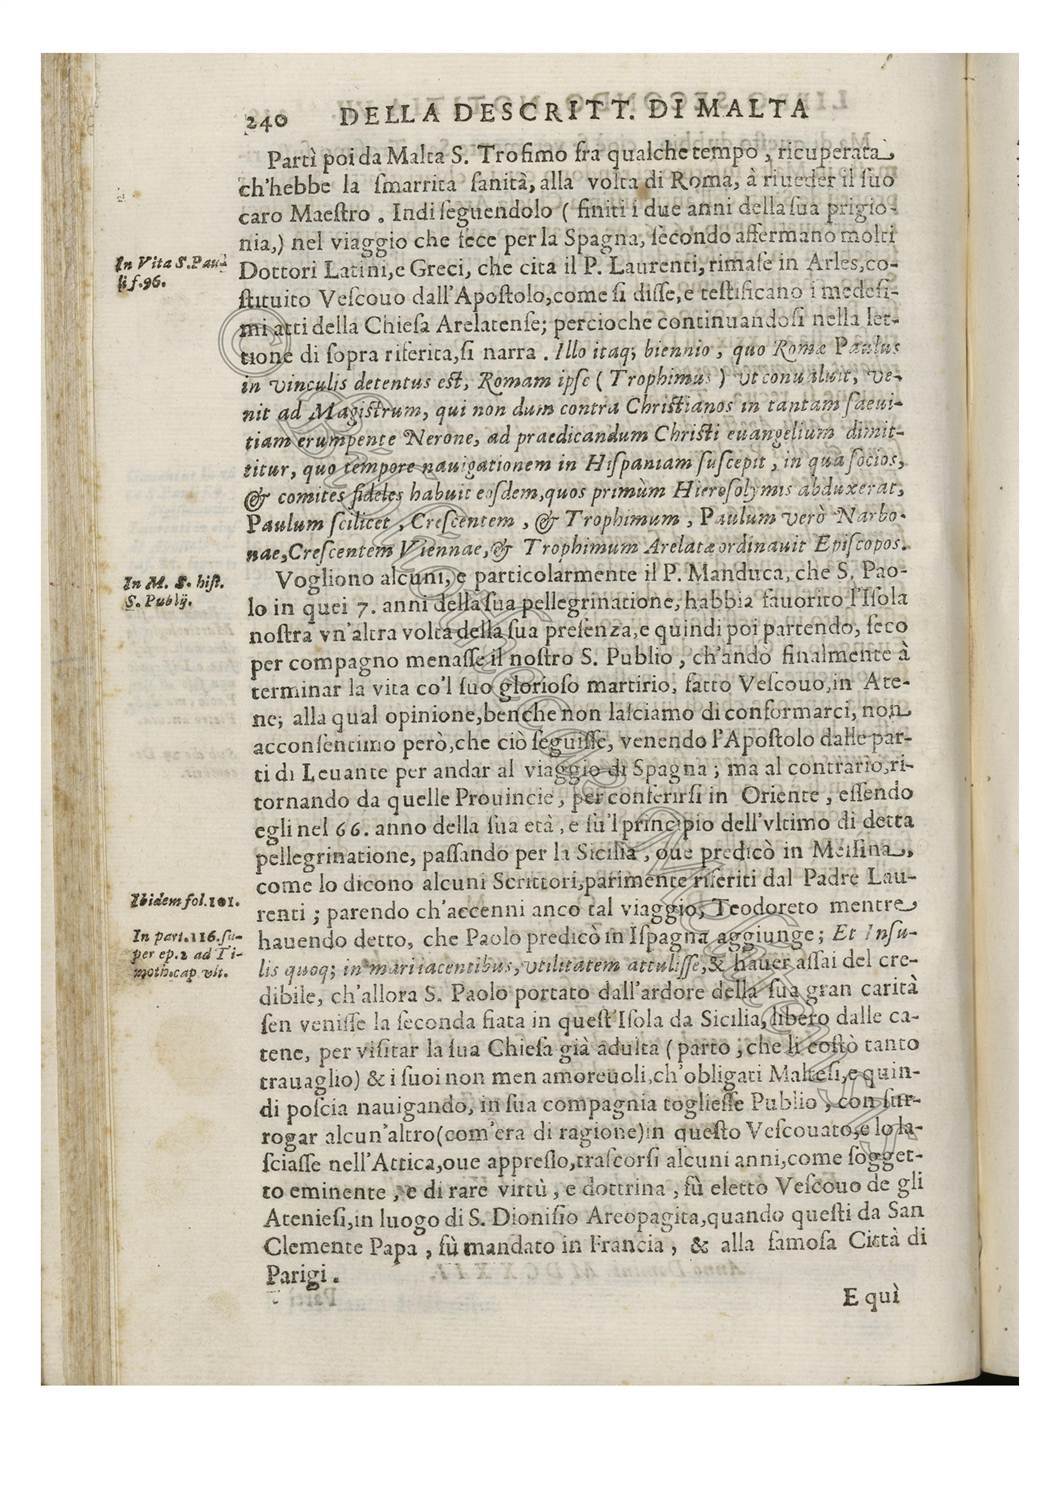 240 DELLA DESCRITT. DI MALTA
Partì poi da Malta S. Trofimo fra qualche tempo, ricuperata
ch'hebbe la ſmarrita ſanità, alla volta di Roma, à riueder il ſuo
caro Maeſtro. Indi ſeguendolo ( finiti i due anni della ſua prigio-
nia,) nel viaggio che fece per la Spagna, ſecondo affermano molti
In Vita S. Pau
li f. 96.
Dottori Latini, e Greci, che cita il P. Laurenti, rimaſe in Arles, co-
ſtituito Veſcouo dall'Apoſtolo, come ſi diſſe, e teſtificano i medeſi-
mi atti della Chieſa Arelatenſe; percioche continuandoſi nella let-
tione di ſopra riferita, ſi narra. Illo itaq; biennio, quo Romæ Paulus
in vinculis detentus eſt, Romam ipſe ( Trophimus ) vt conualuit, ve-
nit ad Magiſtrum, qui non dum contra Chriſtianos in tantam ſaeui-
tiam erumpente Nerone, ad praedicandum Chriſti euangelium dimit-
titur, quo tempore nauigationem in Hiſpaniam ſuſcepit, in qua ſocios,
& comites fideles habuit eoſdem, quos primùm Hieroſolymis abduxerat,
Paulum ſcilicet, Creſcentem, & Trophimum, Paulum verò Narbo-
nae, Creſcentem Viennae, & Trophimum Arelatæ ordinauit Epiſcopos.
In M. S. hiſt.
S. Publij.
Vogliono alcuni, e particolarmente il P. Manduca, che S. Pao-
lo in quei 7. anni della ſua pellegrinatione, habbia fauorito l'Iſola
noſtra vn'altra volta della ſua preſenza, e quindi poi partendo, ſeco
per compagno menaſſe il noſtro S. Publio, ch'andò finalmente à
terminar la vita co'l ſuo glorioſo martirio, fatto Veſcouo, in Ate-
ne; alla qual opinione, benche non laſciamo di conformarci, non
acconſentimo però, che ciò ſeguiſſe, venendo l'Apoſtolo dalle par-
ti di Leuante per andar al viaggio di Spagna; ma al contrario, ri-
tornando da quelle Prouincie, per conferirſi in Oriente, eſſendo
egli nel 66. anno della ſua età, e ſu'l principio dell'vltimo di detta
pellegrinatione, paſſando per la Sicilia, oue predicò in Meſſina,
come lo dicono alcuni Scrittori, parimente riferiti dal Padre Lau-
Ibidem fol. 101.
renti; parendo ch'accenni anco tal viaggio, Teodoreto mentre
In pari. 116. ſu-
per ep. 2 ad Ti-
moth. cap. vlt.
hauendo detto, che Paolo predicò in Iſpagna aggiunge; Et Inſu-
lis quoq; in mari iacentibus, vtilitatem attuliſſe, & hauer aſſai del cre-
dibile, ch'allora S. Paolo portato dall'ardore della ſua gran carità
ſen veniſſe la ſeconda fiata in queſt'Iſola da Sicilia, libero dalle ca-
tene, per viſitar la ſua Chieſa già adulta ( parto, che li coſtò tanto
trauaglio) & i ſuoi non men amoreuoli, ch'obligati Malteſi, e quin-
di poſcia nauigando, in ſua compagnia toglieſſe Publio, con ſur-
rogar alcun'altro (com'era di ragione) in queſto Veſcouato, e lo la-
ſciaſſe nell'Attica, oue appreſſo, traſcorſi alcuni anni, come ſogget-
to eminente, e di rare virtù, e dottrina, fù eletto Veſcouo de gli
Atenieſi, in luogo di S. Dioniſio Areopagita, quando queſti da San
Clemente Papa, fù mandato in Francia, & alla famoſa Città di
Parigi.
E quì